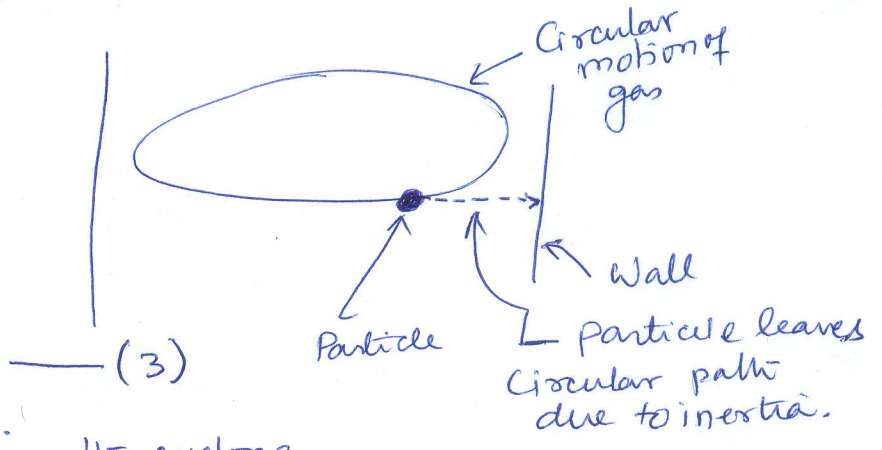 Circular
motion of
gas
Wall
Particle
particle leaves
Circular path
due to inertia.
(3)